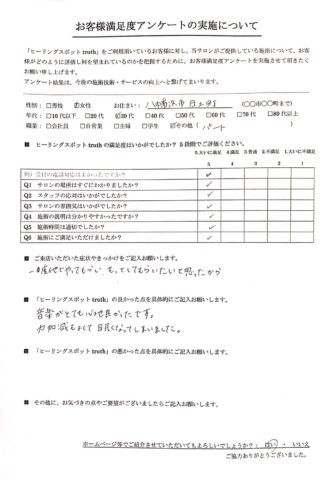 お客様満足度アンケートの実施について
「ヒーリングスポット truth」をご利用頂いているお客様に対し、当サロンがご提供している施術について、お客
様がどのように評価し何を望まれているのかを把握するために、お客様満足度アンケートを実施させて頂きたく
お願い申し上げます。
アンケート結果は、今後の施術技術・サービスの向上へと繋げてまいります。
性別:□男性 ☑女性 お住まい: (〇〇市〇〇町まで)
年代:□10代以下 □20代 ☑30代 □40代 □50代 □60代 □70代 □80代以上
職業:□会社員 □自営業 □主婦 □学生 ☑その他( パート )
■ ヒーリングスポット truth の満足度はいかがでしたか? 5段階でご評価ください。
5.大いに満足 4.満足 3.普通 2.不満足 1.大いに不満足
5 4 3 2 1
例) 受付の電話対応は良かったですか? ✓
Q1 サロンの場所はすぐにわかりましたか? ✓
Q2 スタッフの応対はいかがでしたか? ✓
Q3 サロンの雰囲気はいかがでしたか? ✓
Q4 施術の説明は分かりやすかったですか? ✓
Q5 施術時間は適切でしたか? ✓
Q6 施術にご満足いただけましたか? ✓
■ ご来店いただいた症状やきっかけをご記入お願いします。
やってもらい、もっとしてもらいたいと思ったから
■ 「ヒーリングスポット truth」の良かった点を具体的にご記入お願いします。
音楽がとても心地良かったです。
力加減もよくて眠くなってしまいました。
■ 「ヒーリングスポット truth」の悪かった点を具体的にご記入お願いします。
■ その他に、お気づきの点やご要望がございましたらご記入お願いします。
ホームページ等でご紹介させていただいてもよろしいでしょうか?: はい ・ いいえ
ご協力ありがとうございました。